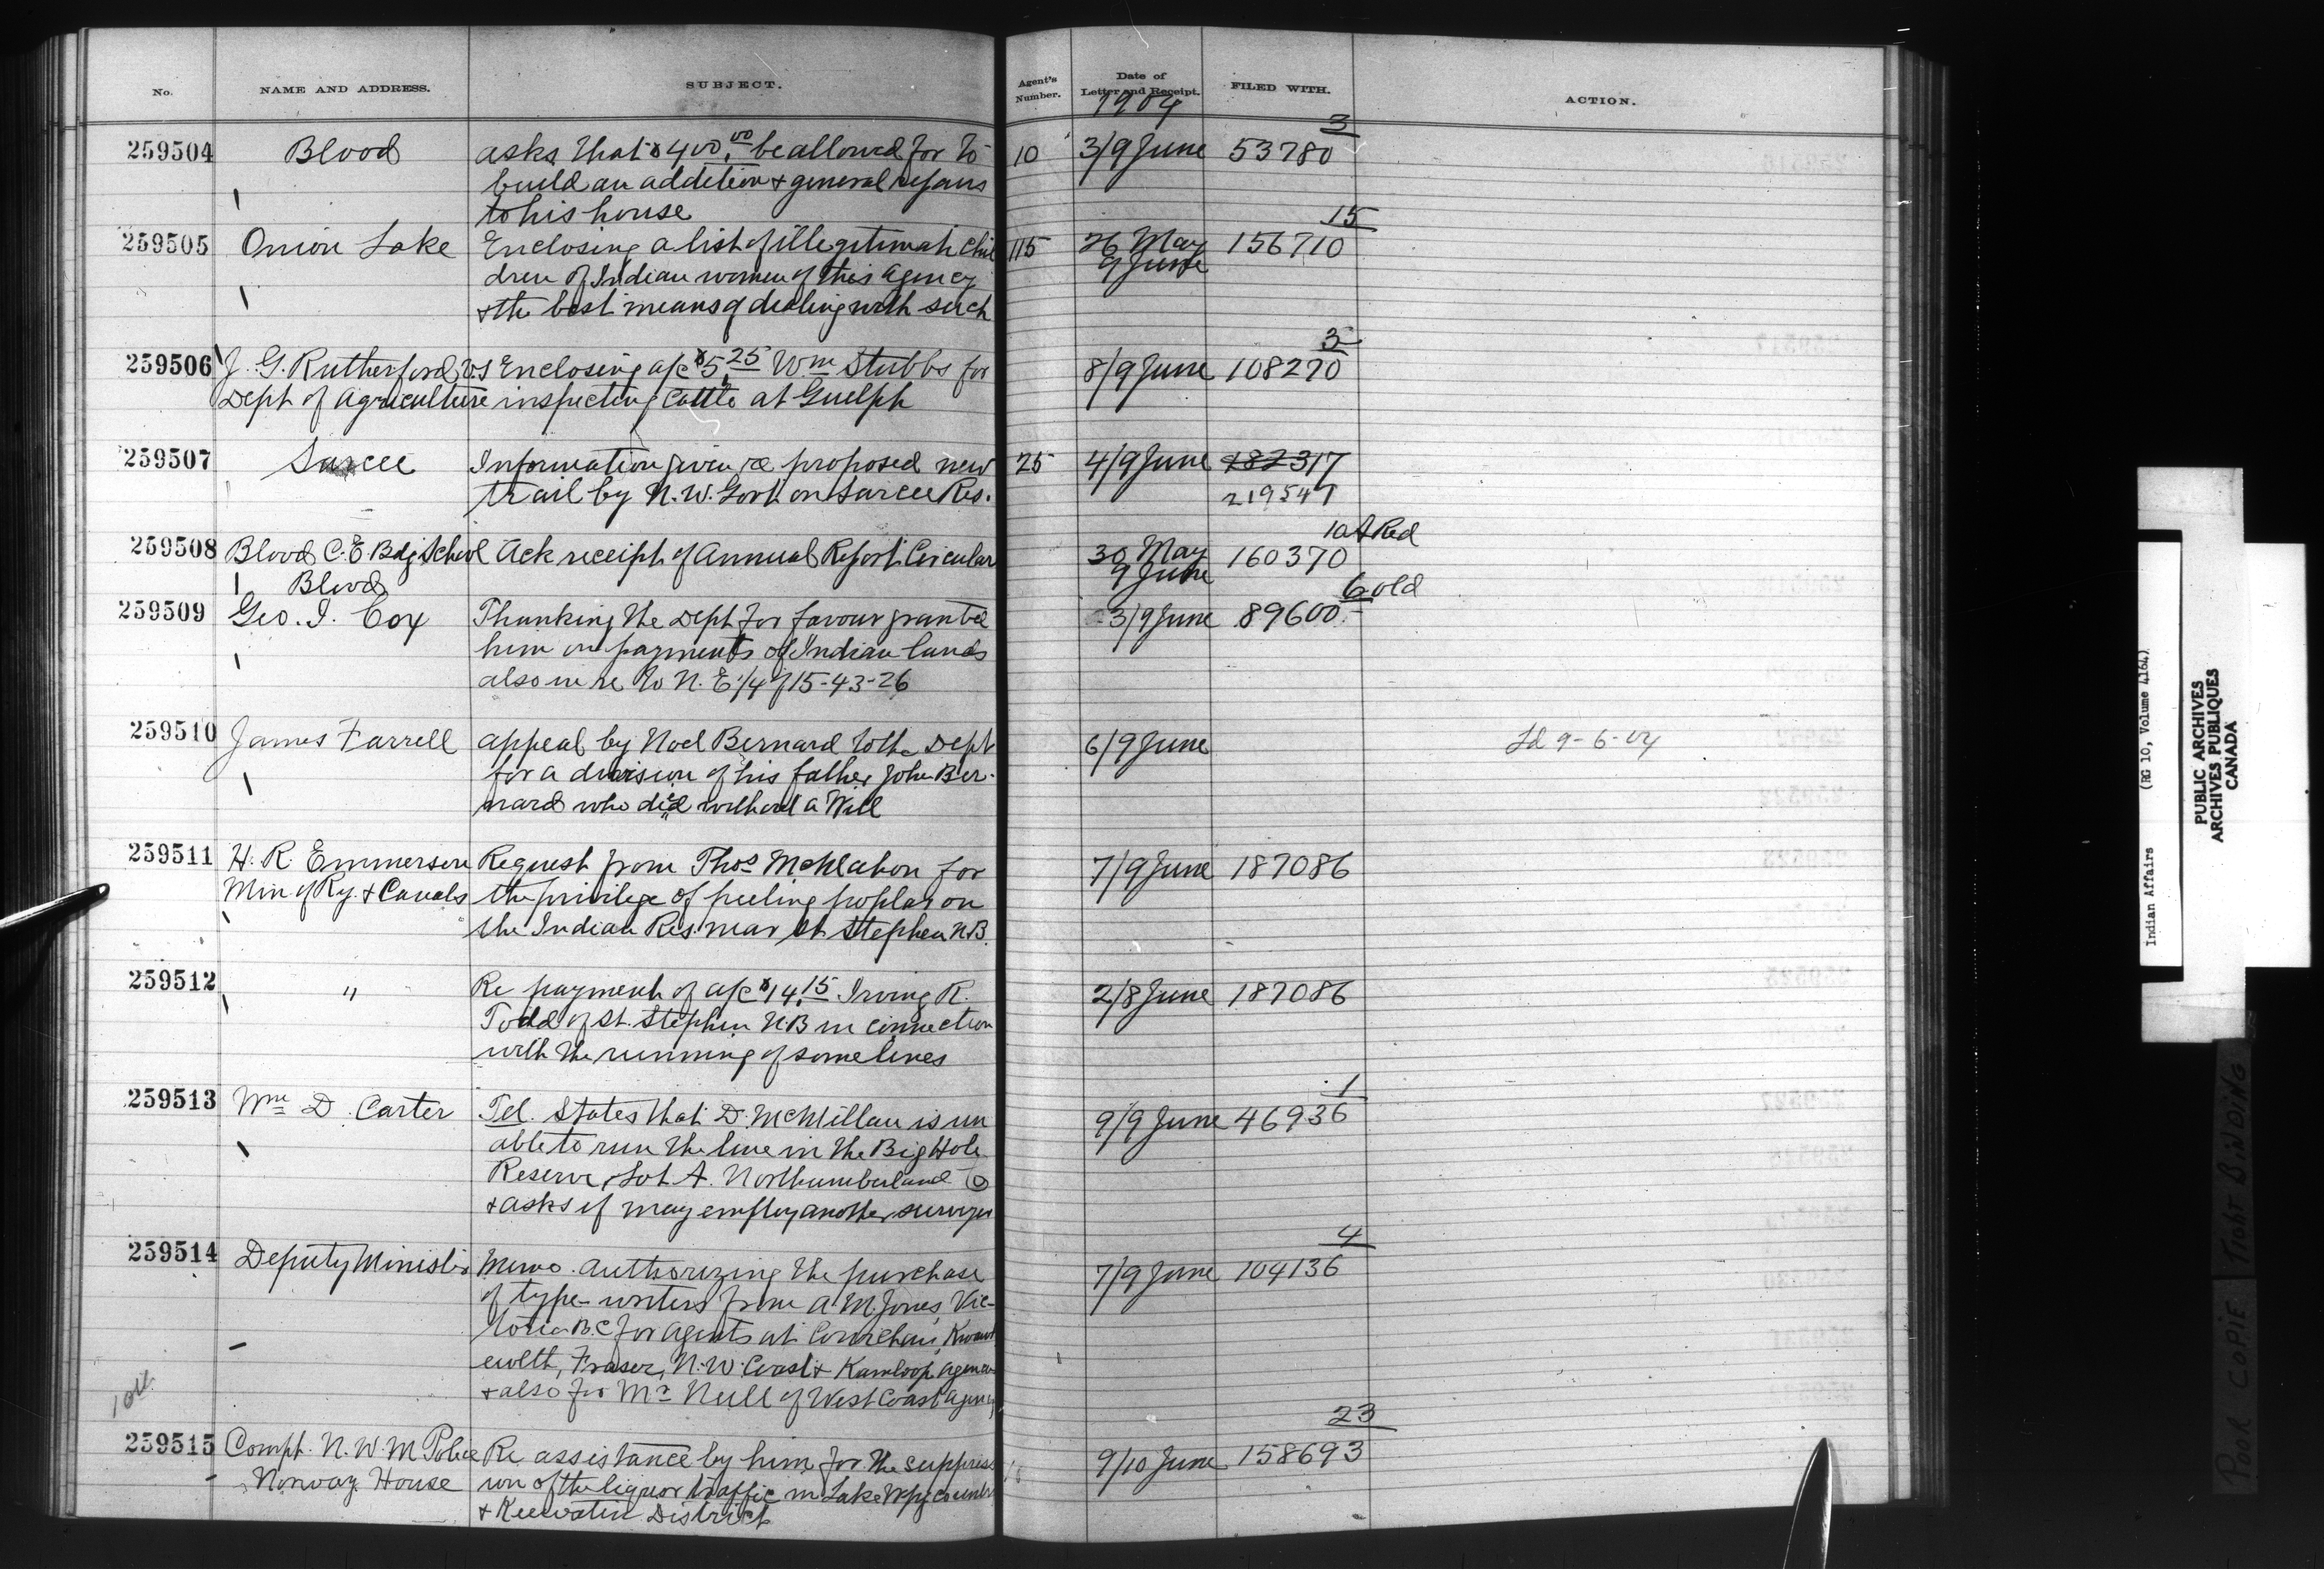 No. NAME AND ADDRESS. SUBJECT. Agent's Number. Date of Letter and Receipt. FILED WITH. ACTION.
1904
259504 Blood asks that $400.00 be allowed for to 10 3/9 June 53780 3
build an addition & general repairs
to his house
259505 Onion Lake Enclosing a list of illegitimate chil 115 26 May 156710 15
dren of Indian women of this agency 9 June
& the best means of dealing with such
259506 J. G. Rutherford, V.S Enclosing a/c $5.25 Wm Stubbs for 8/9 June 108270 3
Dept of Agriculture inspecting cattle at Guelph
259507 Sarcee Information given re proposed new 25 4/9 June 182317
trail by N.W. Govt on Sarcee Res. 219547
259508 Blood C.E. Bdg School Ack receipt of Annual Report Circular 30 May 160370 10A Red
Blood 9 June
259509 Geo. I. Cox Thanking the Dept for favour granted 3/9 June 89600 6 old
him on payments of Indian lands
also in re to N.E 1/4 of 15-43-26
259510 James Farrell appeal by Noel Bernard to the Dept 6/9 June Ld 9-6-04
for a division of his father John Ber-
nard who died without a Will
259511 H. R. Emmerson Request from Thos McMahon for 7/9 June 187086
Min of Ry. & Canals the privilege of peeling poplar on
the Indian Res. near St Stephen N.B.
259512 " Re payment of a/c $14.15 Irving R. 2/8 June 187086
Todd of St. Stephen N.B in connection
with the running of some lines
259513 Wm D. Carter Tel. States that D. McMillan is un 9/9 June 46936 1
able to run the line in the Big Hole
Reserve, Lot A. Northumberland Co
& asks if may employ another surveyor
259514 Deputy Minister Memo. authorizing the purchase 7/9 June 104136 4
of type-writers from A. M. Jones, Vic-
toria B.C for agents at Cowichan, Kwawk
ewlth, Fraser, N.W. Coast & Kamloop agencies
& also for Mr Neill of West Coast agency
259515 Compt. N.W.M Police Re assistance by him for the suppress 9/10 June 158693 23
Norway House ion of the liquor traffic in Lake Wpg country
& Keewatin District
Indian Affairs (RG 10, Volume 4164)
PUBLIC ARCHIVES
ARCHIVES PUBLIQUES
CANADA
POOR COPIE TIGHT BINDING